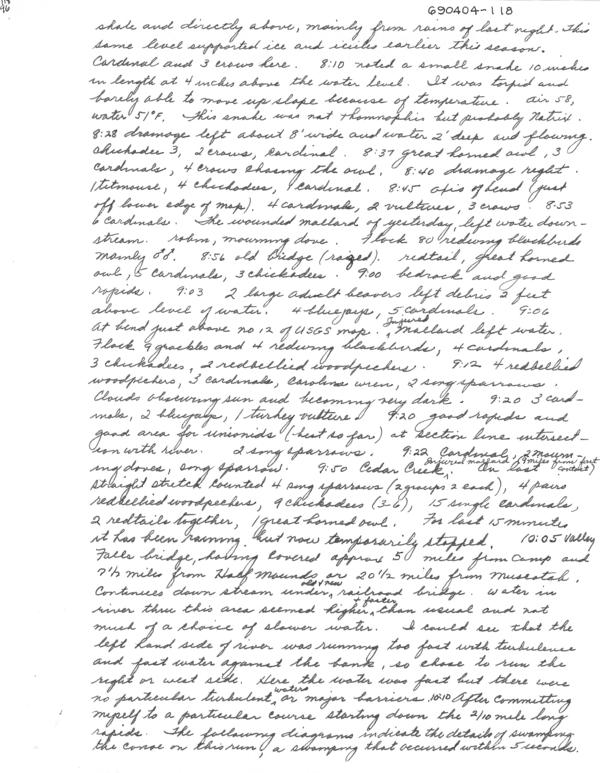 690404-118
shale and directly above, mainly from rains of last night. This
same level supported ice and icicles earlier this season.
Cardinal and 3 crows here. 8:10 noted a small snake 10 inches
in length at 4 inches above the water level. It was torpid and
barely able to move up slope because of temperature. air 58,
water 51°F. This snake was not Thamnophis but probably Natrix.
8:28 drainage left about 8' wide and water 2' deep and flowing.
Chickadee 3, 2 crows, cardinal. 8:37 great horned owl, 3
cardinals, 4 crows chasing the owl. 8:40 drainage right.
1 titmouse, 4 chickadees, 1 cardinal. 8:45 apis of bend (just
off lower edge of map). 4 cardinals, 2 vultures, 3 crows. 8:53
6 cardinals. The wounded mallard of yesterday, left water down-
stream. robin, mourning dove. Flock 80 redwing blackbirds
mainly ♂♂. 8:56 old bridge (razed). redtail, great horned
owl, 5 cardinals, 3 chickadees. 9:00 bedrock and good
rapids. 9:03 2 large adult beavers left debris 2 feet
above level of water. 4 bluejays, 5 cardinals. 9:06
At bend just above no 12 of USGS map. Injured Mallard left water.
Flock 9 grackles and 4 redwing blackbirds, 4 cardinals,
3 chickadees, 2 redbellied woodpeckers. 9:12 4 redbellied
woodpeckers, 3 cardinals, Carolina wren, 2 song sparrows.
Clouds obscuring sun and becoming very dark. 9:20 3 card-
inals, 2 bluejays, 1 turkey vulture. 9:20 good rapids and
good area for unionids (best so far) at section line intersect-
ion with river. 2 song sparrows. 9:22 Cardinal, 2 mourn-
ing doves, song sparrow. 9:50 Cedar Creek, Injured mallard (9 miles from first contact) On last
straight stretch counted 4 song sparrows (2 groups 2 each), 4 pairs
redbellied woodpeckers, 9 chickadees (3-6), 15 single cardinals,
2 redtails together, 1 great horned owl. For last 15 minutes
it has been raining but now temporarily stopped. 10:05 Valley
Falls bridge, having covered approx 5 miles from camp and
7 1/2 miles from Half Mounds or 20 1/2 miles from Muscotah.
Continues down stream under old & new railroad bridge. Water in
river thru this area seemed higher & faster than usual and not
much of a choice of slower water. I could see that the
left hand side of river was running too fast with turbulence
and fast water against the bank, so chose to run the
right or west side. Here the water was fast but there were
no particular turbulent waters or major barriers. 10:10 After committing
myself to a particular course starting down the 2/10 mile long
rapids. The following diagrams indicate the details of swamping
the canoe on this run, a swamping that occurred within 5 seconds.